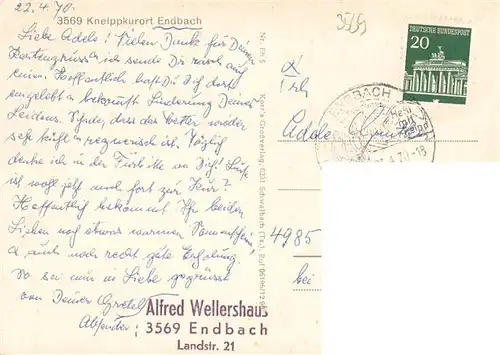 22.4.70.
3569 Kneippkurort Endbach
Liebe Adele! Vielen Dank für Deinen
Kartengruss ich sende Dir rasch auf
einen. Hoffentlich hast Du Dich dort
eingelebt u bekommst Linderung Deines
Leidens. Schade, dass das Wetter wieder
sehr kühl u regnerisch ist. Täglich
denke ich in der Fürbitte an Dich! Luise
ist wohl jetzt auch fort zur Kur?
Hoffentlich bekommt Ihr beiden
Lieben noch etwas warmen Sonnenschein,
u auch noch recht gute Erholung.
So sei nun in Liebe gegrüsst
von Deiner Gretel
Absender:
Alfred Wellershaus
3569 Endbach
Landstr. 21
Nr. En 5
Korr's Großverlag, 6231 Schwalbach (Ts.), Ruf 06196/12
3569
DEUTSCHE BUNDESPOST
20
ENDBACH
Heilt
Kneipp
Adele
4985
bei